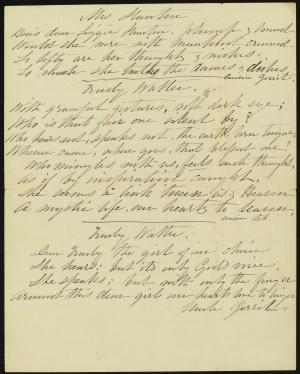 Mrs. Stanton
Here's dear Lizzie Stanton. plump & round
Would she were with
So lofty are her thoughts & wishes.
So much she the dames & dishes
cousin Gerrit.
Trudy Waller.
With graceful gestures, soft dark eye;
Who is that fair one silent by?
Who hears not, speaks not, the earth born tongue,
Whence came, where goes, that bright one?
Who mingles with us, feels each thought,
as if by inspiration caught.
She seems a link tween us & Heaven
A mystic life, our hearts to leaven.
cousin Lib.
Trudy Waller.
Dear Trudy the girl of our choice
She hears; but its only God's voice
She speaks; but with only the finger
around this dear girl our hearts love to linger
Uncle Gerrit.